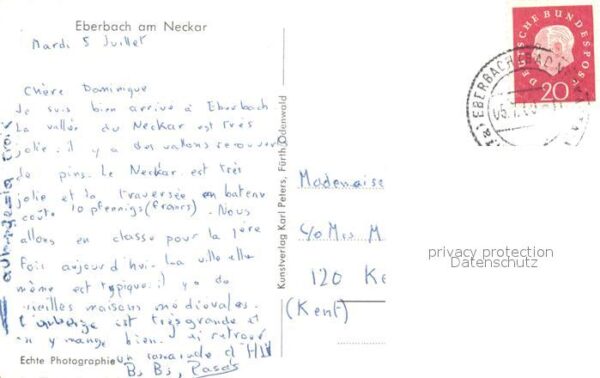 Eberbach am Neckar
Mardi 5 Juillet
Chère Dominique
Je suis bien arrivé à Eberbach
La vallée du Neckar est très
jolie: il y a des vallons recouverts
de pins. Le Neckar est très
jolie et la traversée en bateau
coûte 10 pfennigs (francs). Nous
allons en classe pour la 1ère
fois aujourd'hui. La ville elle
même est typique: il y a de
vieilles maisons médiévales.
L'auberge est très grande et
on y mange bien. J'ai retrouvé
un camarade d'
Echte Photographie
Kunstverlag Karl Peters, Fürth/Odenwald
DEUTSCHE BUNDESPOST
20
EBERBACH
Mademoise
C/O Mrs M
120 Ke
(Kent)
privacy protection
Datenschutz